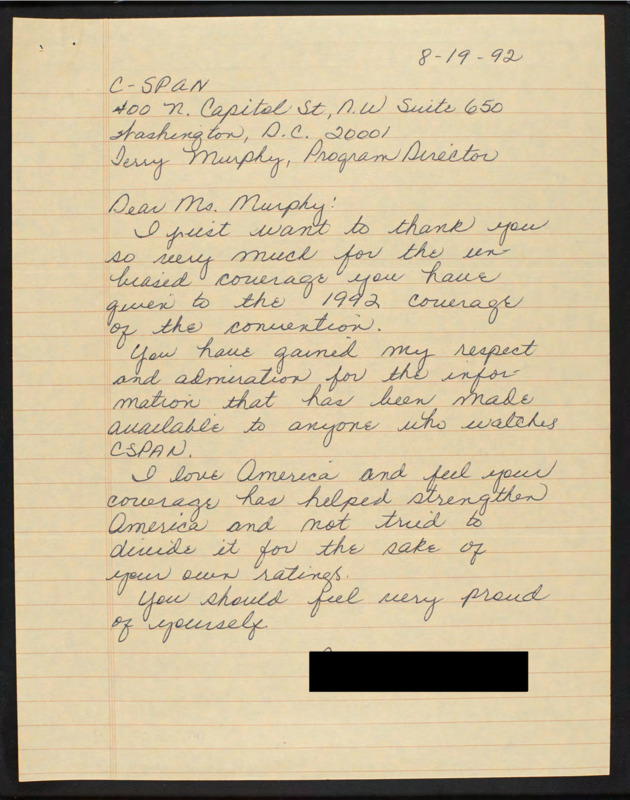 8-19-92
C-SPAN
400 N. Capitol St, N.W Suite 650
Washington, D.C. 20001
Terry Murphy, Program Director
Dear Ms. Murphy:
I just want to thank you
so very much for the un-
biased coverage you have
given to the 1992 coverage
of the convention.
You have gained my respect
and admiration for the infor-
mation that has been made
available to anyone who watches
CSPAN.
I love America and feel your
coverage has helped strengthen
America and not tried to
divide it for the sake of
your own ratings.
You should feel very proud
of yourself